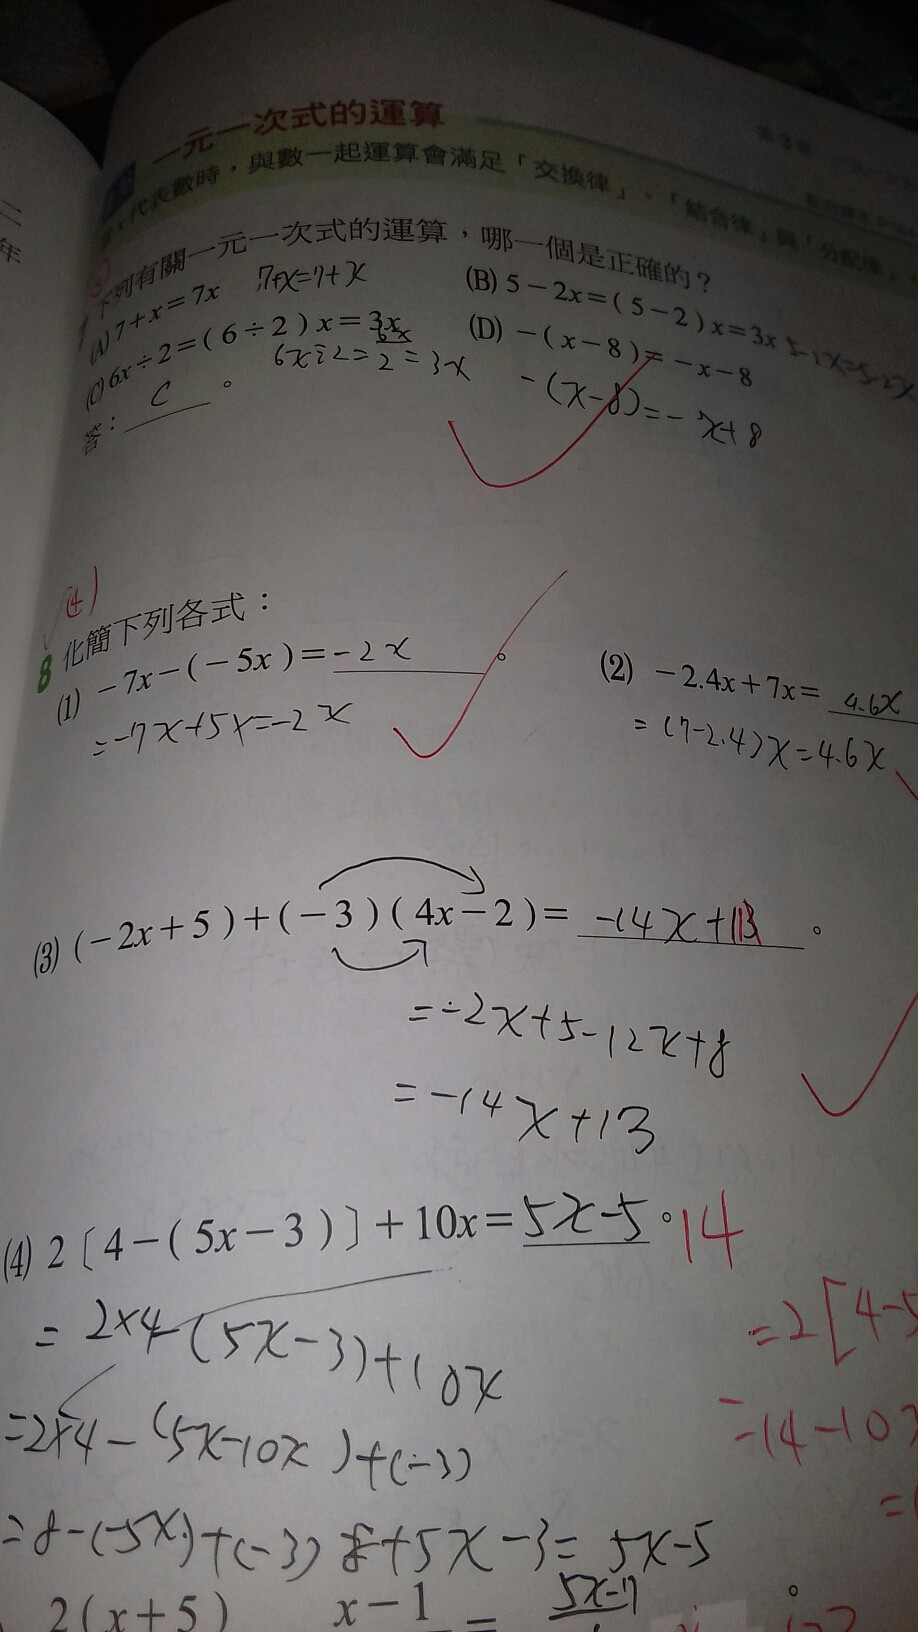 一元一次式的運算
代表數時，與數一起運算會滿足「交換律」、「結合律」與「分配律」
二年
下列有關一元一次式的運算，哪一個是正確的？
(A) 7＋x＝7x 7+x=7+x
(B) 5－2x＝(5－2)x＝3x 5-2x=5-2x
(C) 6x÷2＝(6÷2)x＝3x
6x÷2=6x/2=3x
(D) －(x－8)＝－x－8
-(x-8)=-x+8
答：C。
(4)
8 化簡下列各式：
(1) －7x－(－5x)＝-2x。
=-7x+5x=-2x
(2) －2.4x＋7x＝4.6x
=(7-2.4)x=4.6x
(3) (－2x＋5)＋(－3)(4x－2)＝-14x+13。
=-2x+5-12x+8
=-14x+13
(4) 2〔4－(5x－3)〕＋10x＝5x-5。14
=2×4-(5x-3)+10x
=2[4-5
=2×4-(5x-10x)+(-3)
=14-10x
=8-(-5x)+(-3) 8+5x-3=5x-5
2(x＋5) x－1 ＝ 5x-7